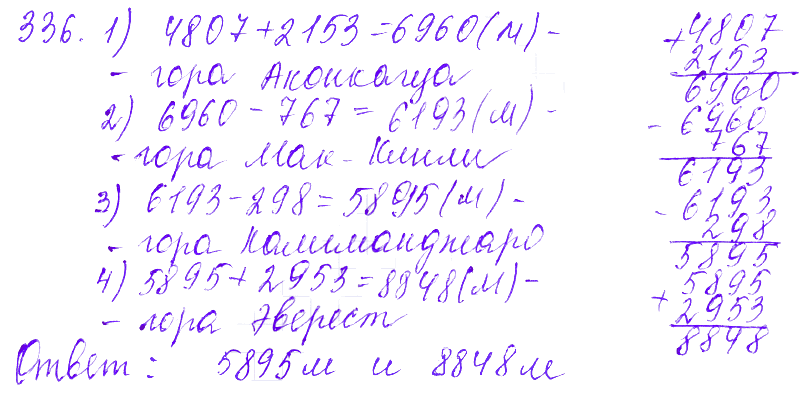 336. 1) 4807+2153=6960(м)-
- гора Аконкагуа
2) 6960-767=6193(м)-
- гора Мак-Кинли
3) 6193-298=5895(м)-
- гора Калиманджаро
4) 5895+2953=8848(м)-
- гора Эверест
Ответ: 5895м и 8848м
+4807
2153
6960
-6960
767
6193
-6193
298
5895
+5895
2953
8848